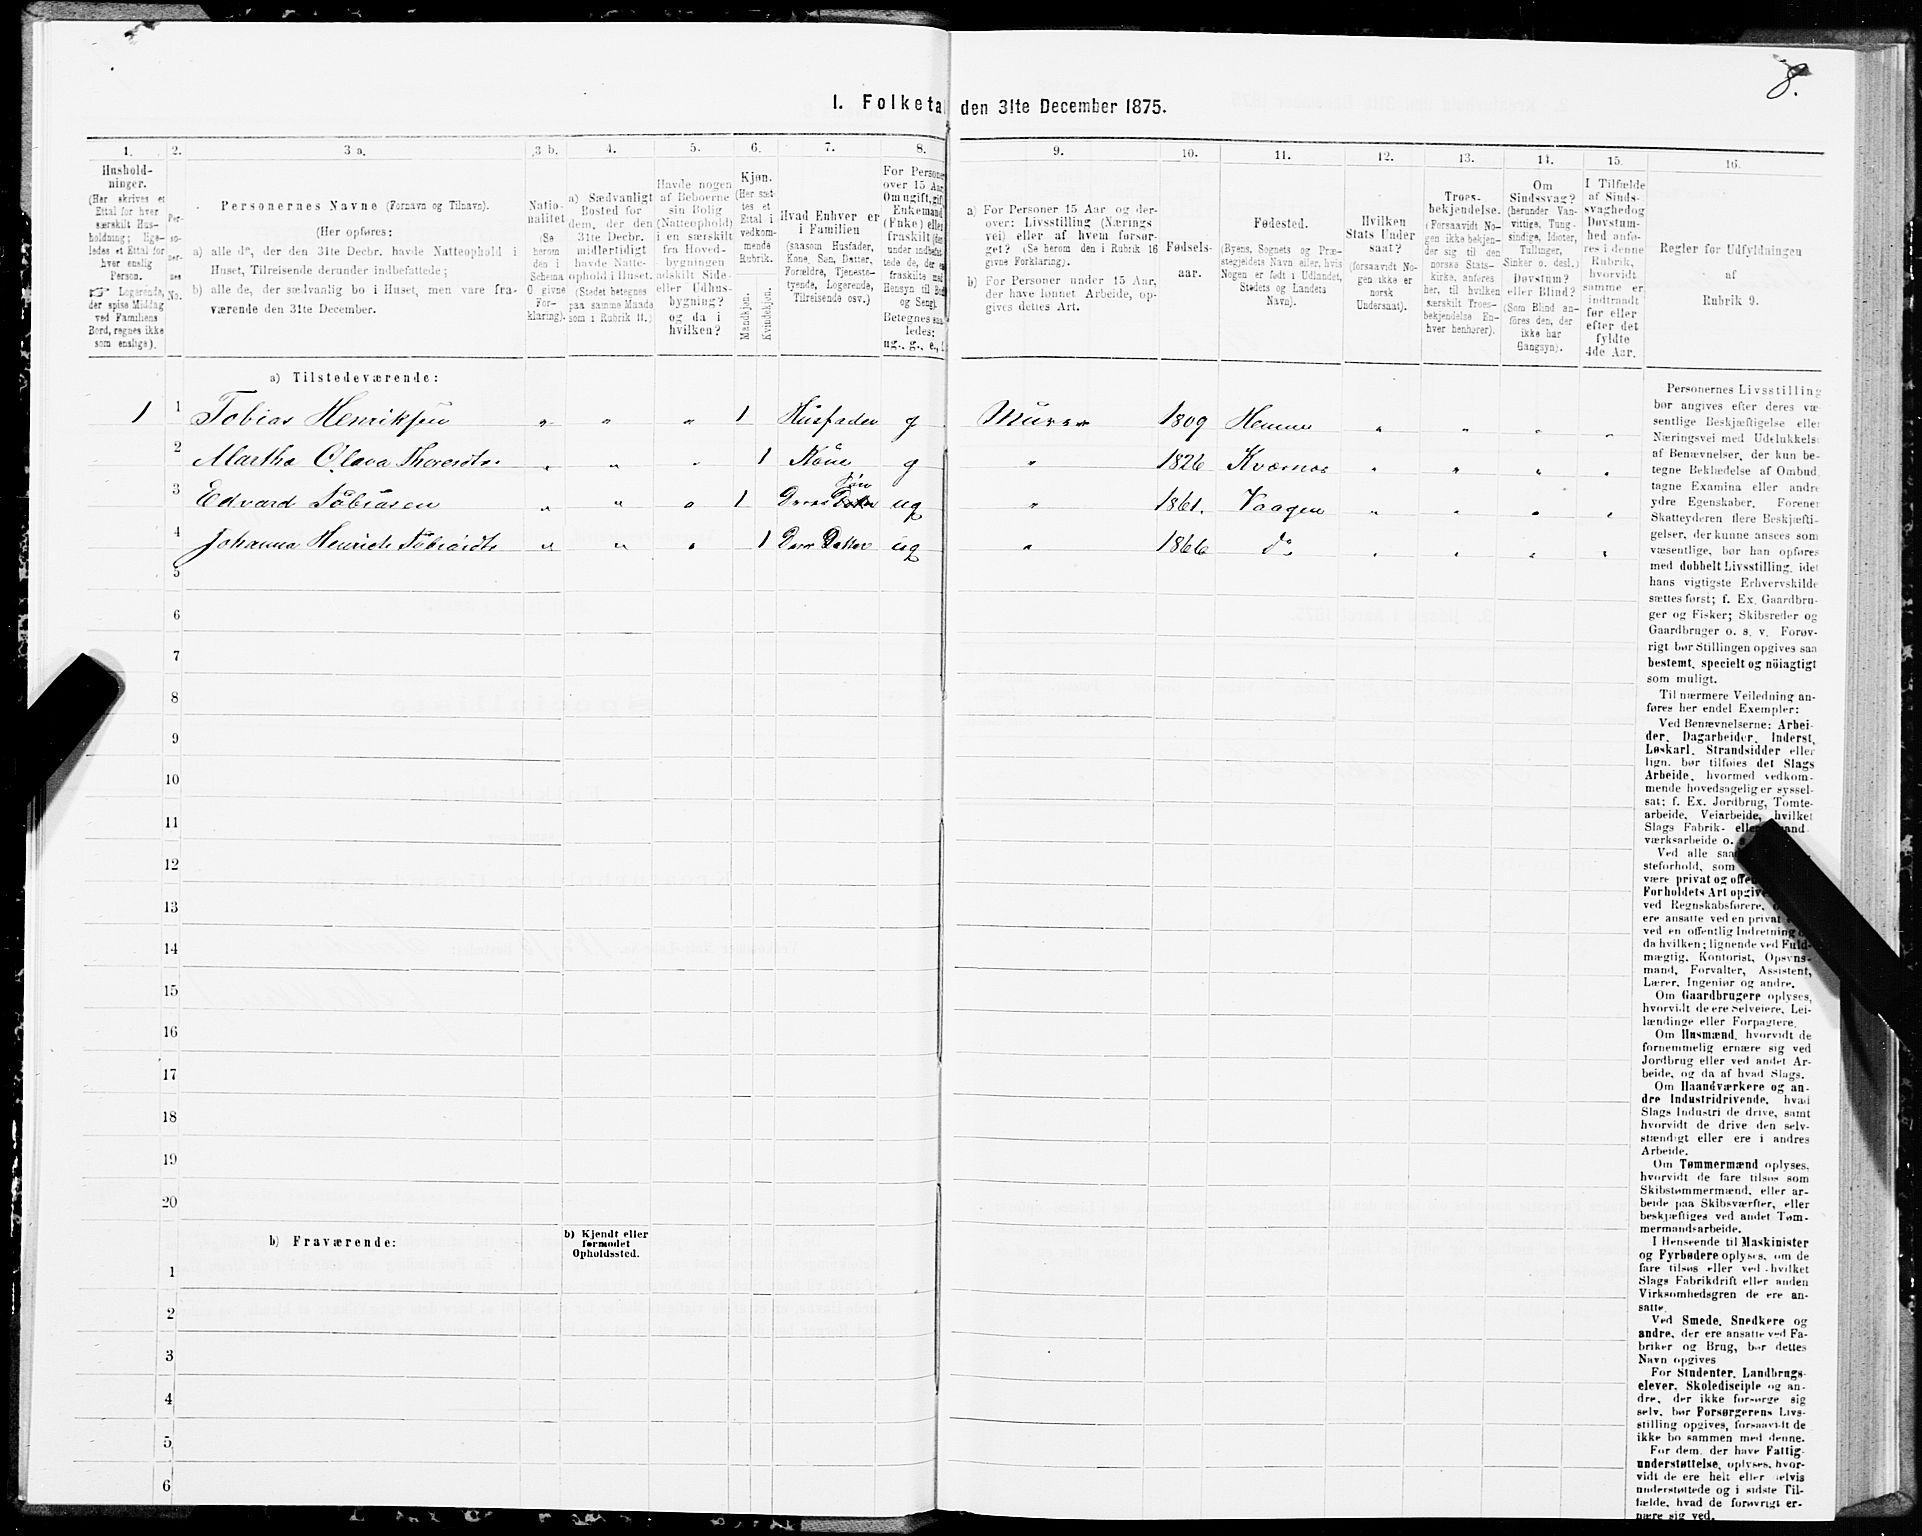 8.
I. Folketal den 31te December 1875.
1. 2. 3 a. 3 b. 4. 5. 6. 7. 8. 9. 10. 11. 12. 13. 14. 15. 16.
Hushold-
ninger.
(Her skrives et
Ettal for hver
særskilt Hus-
holdning; lige-
ledes et Ettal for
hver enslig
Person.
☞ Logerende,
der spise Middag
ved Familiens
Bord, regnes ikke
som enslige).
Per-
so-
ner-
nes
No.
Personernes Navne (Fornavn og Tilnavn).
(Her opføres:
a) alle de, der den 31te Decbr. havde Natteophold i
Huset, Tilreisende derunder indbefattede;
b) alle de, der sædvanlig bo i Huset, men vare fra-
værende den 31te December.
Natio-
nalitet
(Se
herom
den i
Schema
O givne
For-
klaring).
a) Sædvanligt
Bosted for
dem, der den
31te Decbr.
midlertidigt
havde Natte-
ophold i Huset.
(Stedet betegnes
paa samme Maade
som i Rubrik 11.)
Havde nogen
af Beboerne
sin Bolig
(Natteophold)
i en særskilt
fra Hoved-
bygningen
adskilt Side-
eller Udhus-
bygning?
og da i
hvilken?
Kjøn.
(Her sæt-
tes et
Ettal i
vedkom-
mende
Rubrik.
Mandkjøn.
Kvindekjøn.
Hvad Enhver er
i Familien
(saasom Husfader,
Kone, Søn, Datter,
Forældre, Tjeneste-
tyende, Logerende,
Tilreisende osv.)
For Persone
over 15 Aar
Om ugift, gif
Enkemand
(Enke) eller
fraskilt (der
under indbefat-
tede de, der er
fraskilte med
Hensyn til Bord
og Seng).
Betegnes saa-
ledes:
ug., g., e.,
a) For Personer 15 Aar og der-
over: Livsstilling (Nærings
vei) eller af hvem forsør-
get? (Se herom den i Rubrik 16
givne Forklaring).
b) For Personer under 15 Aar,
der have lønnet Arbeide, op-
gives dettes Art.
Fødsels-
aar.
Fødested.
(Byens, Sognets og Præ-
stegjeldets Navn eller, hvis
Nogen er født i Udlandet,
Stedets og Landets
Navn).
Hvilken
Stats Under
saat?
(forsaavidt No-
gen ikke er
norsk
Undersaat).
Troes-
bekjendelse.
(Forsaavidt No-
gen ikke bekjen-
der sig til den
norske Stats-
kirke, anføres
her, til hvilken
særskilt Troes-
bekjendelse En-
hver henhører).
Om
Sindssvag?
(herunder Van-
vittige, Tung-
sindige, Idioter,
Tullinger,
Sinker o. desl.)
Døvstum?
eller Blind?
(Som Blind an-
føres den, der
ikke har
Gangsyn).
I Tilfælde
af Sinds-
svaghedog
Døvstum-
hed anfø-
res i denne
Rubrik,
hvorvidt
samme er
indtraadt
før eller
efter det
fyldte
4de Aar.
Regler for Udfyldningen
af
Rubrik 9.
a) Tilstedeværende:
1 1 Tobias Henriksen " " " 1 Husfader g Murer 1809 Hemne " " " "
2 Martha Olava Thoresdtr " " " 1 Kone g " 1826 Kværnæs " " " "
Søn
3 Edvard Tobiasen " " " 1 Deres Datter ug " 1861. Vaagen " " " "
4 Johanna Henrich Tobiasdtr " " " 1 Deres Datter ug " 1866 do " " " "
5
6
7
8
9
10
11
12
13
14
15
16
17
18
19
20
b) Fraværende:
b) Kjendt eller
formodet
Opholdssted.
1
2
3
4
5
6
Personernes Livsstilling
bør angives efter deres væ-
sentlige Beskjæftigelse eller
Næringsvei med Udelukkelse
af Benævnelser, der kun be-
tegne Beklædelse af Ombud,
tagne Examina eller andre
ydre Egenskaber. Forener
Skatteyderen flere Beskjæfti-
gelser, der kunne ansees som
væsentlige, bør han opføres
med dobbelt Livsstilling, idet
hans vigtigste Erhvervskilde
sættes først; f. Ex. Gaardbru-
ger og Fisker; Skibsreder og
Gaardbruger o. s. v. Forøv-
rigt bør Stillingen opgives saa
bestemt, specielt og nöiagtigt
som muligt.
Til nærmere Veiledning an-
føres her endel Exempler:
Ved Benævnelserne: Arbei-
der, Dagarbeider, Inderst,
Løskarl, Strandsidder eller
lign. bør tilføies det Slags
Arbeide, hvormed vedkom-
mende hovedsagelig er syssel-
sat; f. Ex. Jordbrug, Tomte-
arbeide, Veiarbeide, hvilket
Slags Fabrik- eller
værksarbeide o.
Ved alle saa
steforhold, som
være privat og
Forholdets Art
ved Regnskabsførere,
ere ansatte ved en privat
ved en offentlig Indretning
da hvilken; lignende ved Fuld-
mægtig, Kontorist, Opsyns-
mand, Forvalter, Assistent,
Lærer, Ingeniør og andre.
Om Gaardbrugere oplyses,
hvorvidt de ere Selveiere, Lei-
lændinge eller Forpagtere.
Om Husmænd, hvorvidt de
fornemmelig ernære sig ved
Jordbrug eller ved andet Ar-
beide, og da af hvad Slags.
Om Haandværkere og an-
dre Industridrivende, hvad
Slags Industri de drive, samt
hvorvidt de drive den selv-
stændigt eller ere i andres
Arbeide.
Om Tømmermænd oplyses,
hvorvidt de fare tilsøs som
Skibstømmermænd, eller ar-
beide paa Skibsværfter, eller
beskjæftiges ved andet Tøm-
mermandsarbeide.
I Henseende til Maskinister
og Fyrbødere oplyses, om de
fare tilsøs eller ved hvilket
Slags Fabrikdrift eller anden
Virksomhedsgren de ere an-
satte.
Ved Smede, Snedkere og
andre, der ere ansatte ved Fa-
briker og Brug, bør dettes
Navn opgives
For Studenter, Landbrugs-
elever, Skoledisciple og an-
dre, der ikke forsørge sig
selv, bør Forsørgerens Livs-
stilling opgives, forsaavidt de
ikke bo sammen med denne.
For dem, der have Fattig-
understøttelse, oplyses, hvor-
vidt de ere helt eller delvis
understøttede og i sidste Til-
fælde, hvad de forøvrigt er-
nære sig ved.